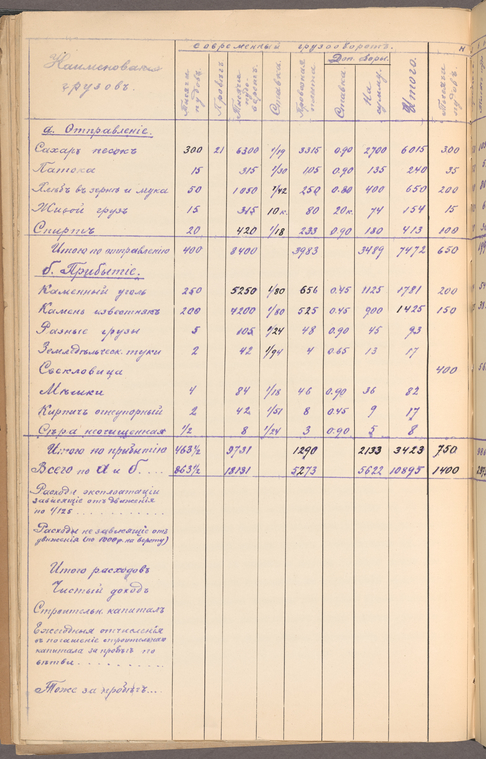 Наименованiе грузовъ.
современный грузооборотъ.
Тысячи пудовъ.
Пробегъ
Тысячи пудо верстъ.
Ставка.
Провозная плата
Доп. сборы.
Ставка
На сумму.
Итого.
Тысячи пудовъ.
а. Отправленiе.
Сахаръ песокъ 300 21 6300 1/19 3315 0.90 2700 6015 300
Патока 15 315 1/30 105 0.90 135 240 35
Хлѣбъ въ зернѣ и мука 50 1050 1/42 250 0.80 400 650 200
Живой грузъ 15 315 10 к. 80 20 к. 74 154 15
Спиртъ 20 420 1/18 233 0.90 180 413 100
Итого по отправленiю 400 8400 3983 3489 7472 650
б. Прибытiе.
Каменный уголь 250 5250 1/80 656 0.45 1125 1781 200
Камень известнякъ 200 4200 1/80 525 0.45 900 1425 150
Разные грузы 5 105 1/24 48 0.90 45 93
Земледѣльческ. туки 2 42 1/94 4 0.65 13 17
Свекловица 400
Мѣшки 4 84 1/18 46 0.90 36 82
Кирпич огнупорный 2 42 1/51 8 0.45 9 17
Сѣра неочищенная 1/2 8 1/24 3 0.90 5 8
Итого по прибытiю 463½ 9731 1290 2133 3423 750
Всего по а и б.... 863½ 18131 5273 5622 10895 1400
Расходы эксплоатацiи
зависящiе отъ движенiя
по 1/125
Расходы не зависящiе отъ
движенiя (по 1000 р. на версту)
Итого расходовъ
Чистый доходъ
Строительн. капиталъ
Ежегодныя отчисленiя
въ погашенiе строительнаго
капитала за пробѣгъ по
вѣтви
Тоже за пробѣгъ...